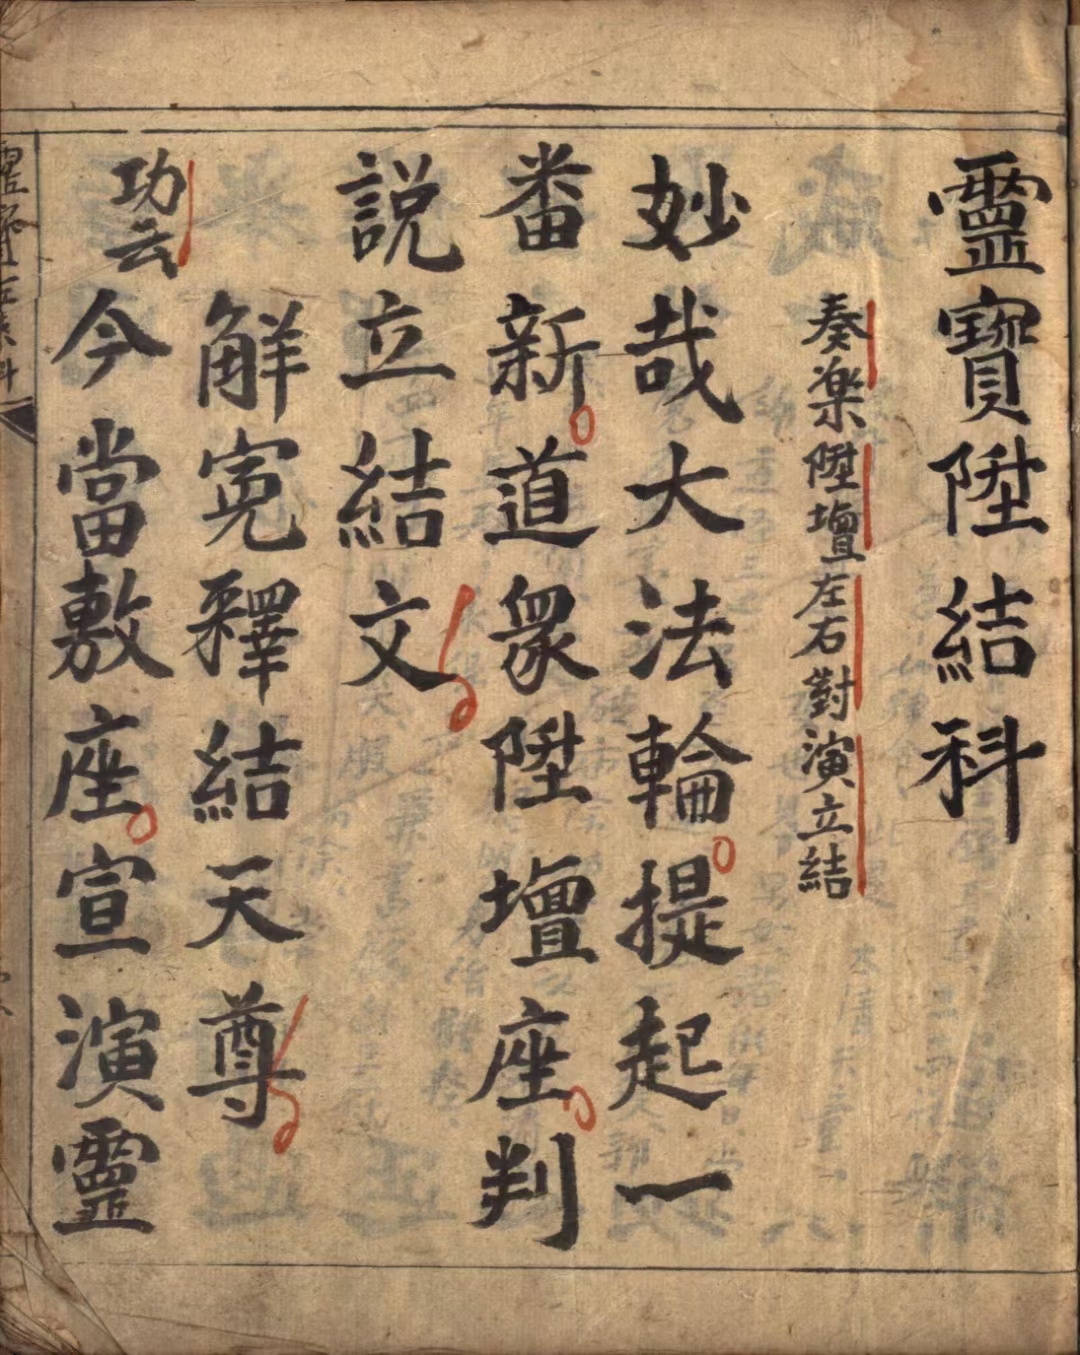 靈寶陞結科
奏楽陞壇左右對演立結
妙哉大法輪提起一
番新道眾陞壇座判
説立結文
解寃釋結天尊
功云
今當敷座宣演靈